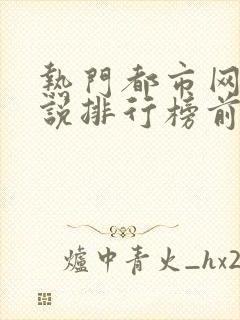 熱門都市网
說排行榜前
爐中青火_hx2